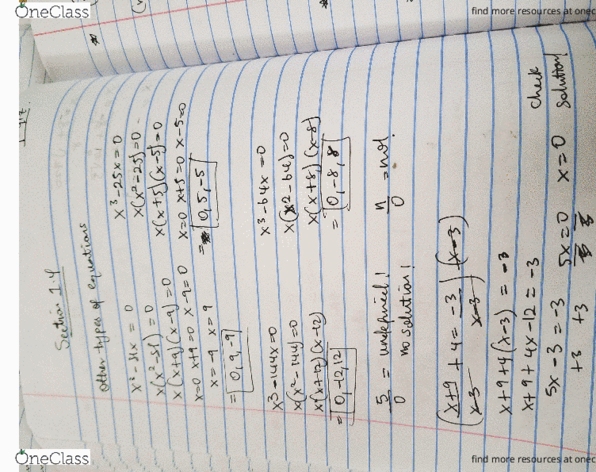 OneClass
find more resources at onec
Section 1.4
Other types of equations
x³-81x = 0
x(x²-81) = 0
x(x+9)(x-9) = 0
x=0 x+9=0 x-9=0
x=-9 x=9
= 0,9,-9
x³-25x=0
x(x²-25)=0
x(x+5)(x-5)=0
x=0 x+5=0 x-5=0
= 0,5,-5
x³-144x=0
x(x²-144)=0
x(x+12)(x-12)
= 0,-12,12
x³-64x=0
x(x2-64)=0
x(x+8)(x-8)
= 0,-8,8
5/0 = undefined!
no solution!
n/0 = not.
(x+9/x-3 + 4 = -3/x-3)(x-3)
x+9+4(x-3) = -3
x+9+4x-12 = -3
5x-3 = -3 5x=0 x=0
+3 +3
check
solution!
OneClass
find more resources at onec